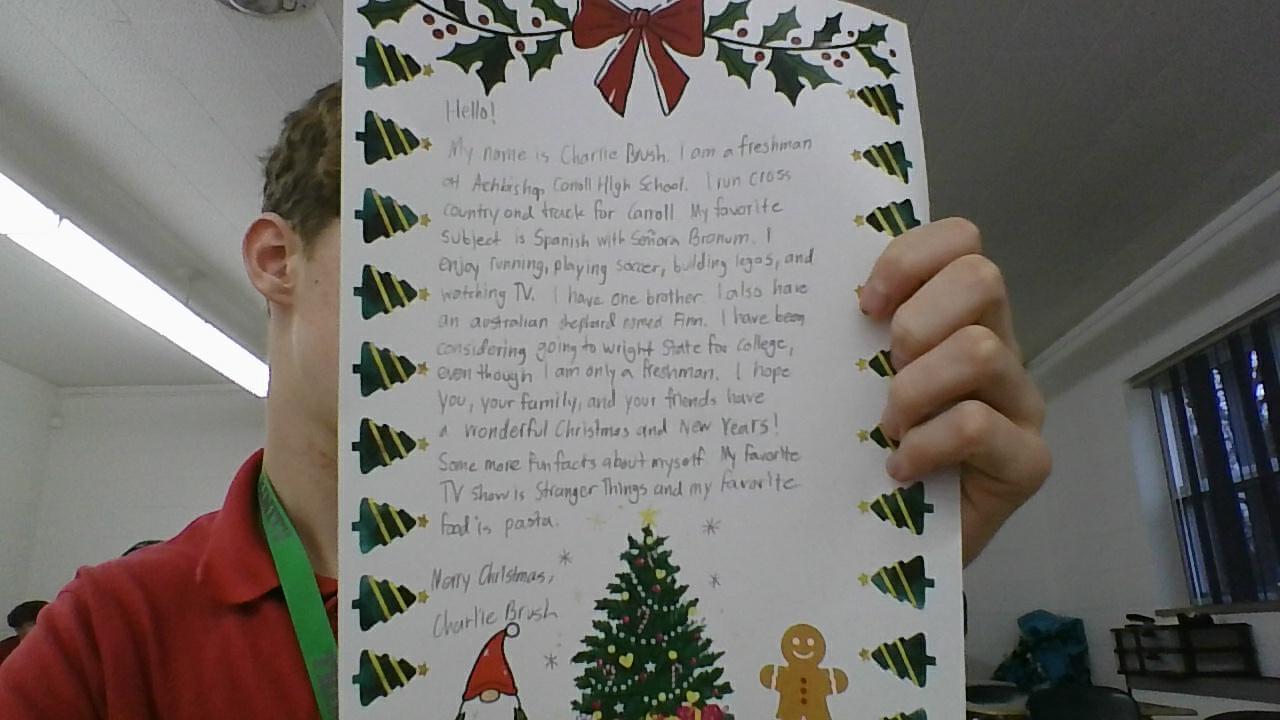 Hello!
My name is Charlie Brush. I am a freshman
at Achbishop Carroll High School. I run cross
country and track for Carroll My favorite
subject is Spanish with Señora Branum. I
enjoy running, playing soccer, building legos, and
watching TV. I have one brother. I also have
an australian shephard named Finn. I have been
considering going to Wright State for College,
even though I am only a freshman. I hope
you, your family, and your friends have
a wonderful Christmas and New Years!
Some more fun facts about myself My favorite
TV show is Stranger Things and my favorite
food is pasta.
Merry Christmas,
Charlie Brush